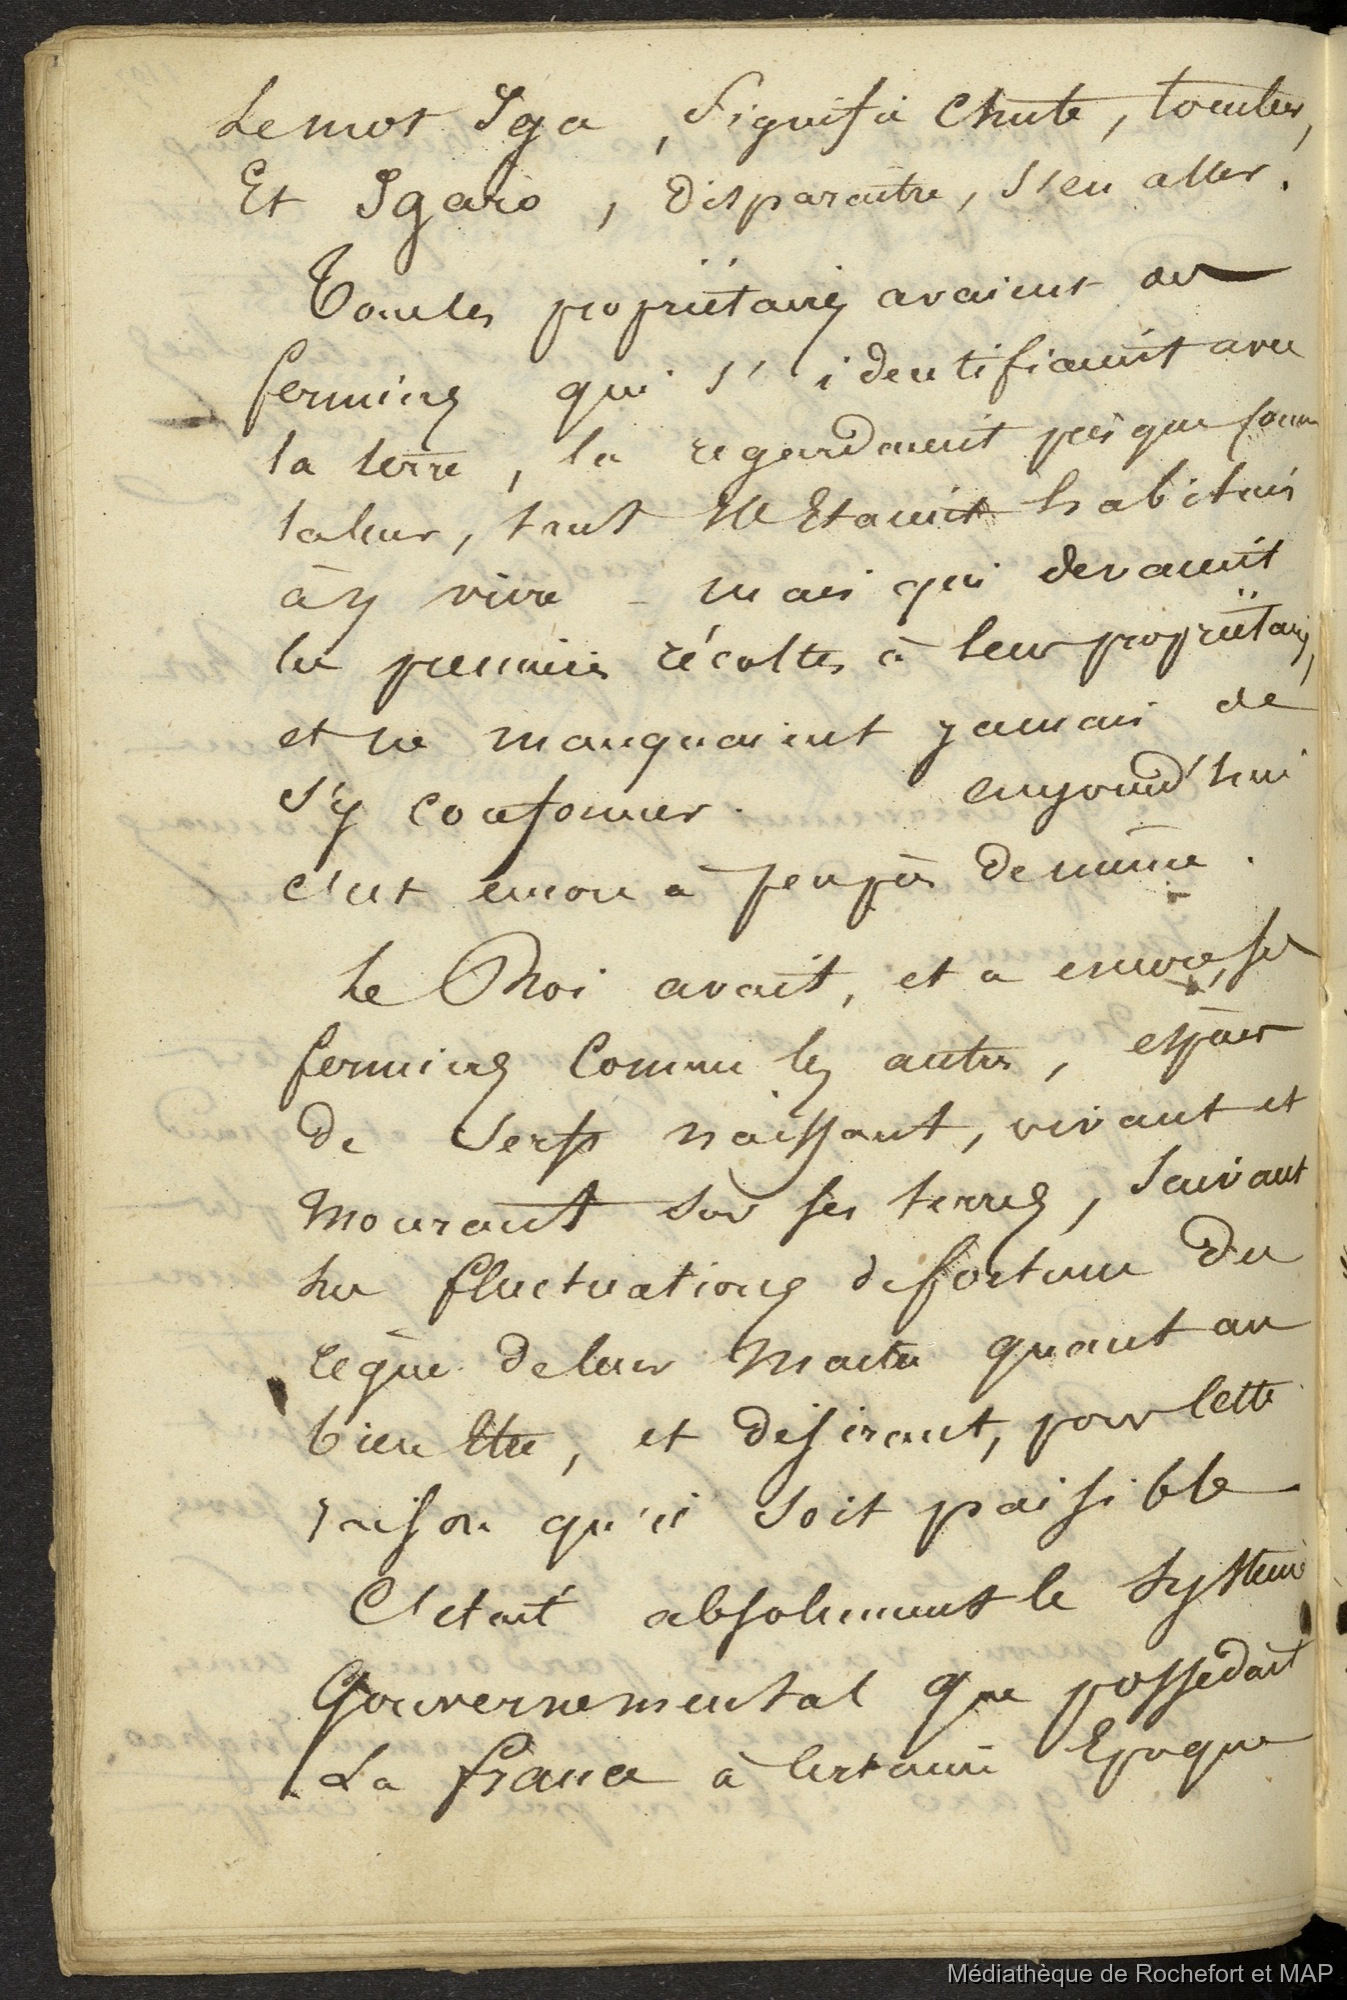 Le mot Iga, signifie chute, tomber,
Et Igaro, disparaître, s'en aller.
Tous les propriëtaires avaient des
fermiers qui s'identifiaient avec
la terre, la regardaient presque comme
la leur, tant ils Etaient habitués
à y vivre - mais qui devaient
les premières récoltes à leur propriëtaire,
et ne manquaient jamais de
s'y conformer. aujourd'hui
c'est encore à peu près de même.
Le Roi avait, et a encore, ses
fermiers comme les autres, espèces
de serfs naissant, vivant et
mourant sur ses terres, suivant
les fluctuations de fortune du
règne de leur maître quant au
bien être, et désirant, pour cette
raison qu'il soit paisible
C'était absolument le système
Gouvernemental que possédait
La france à certaine Epoque
Médiathèque de Rochefort et MAP